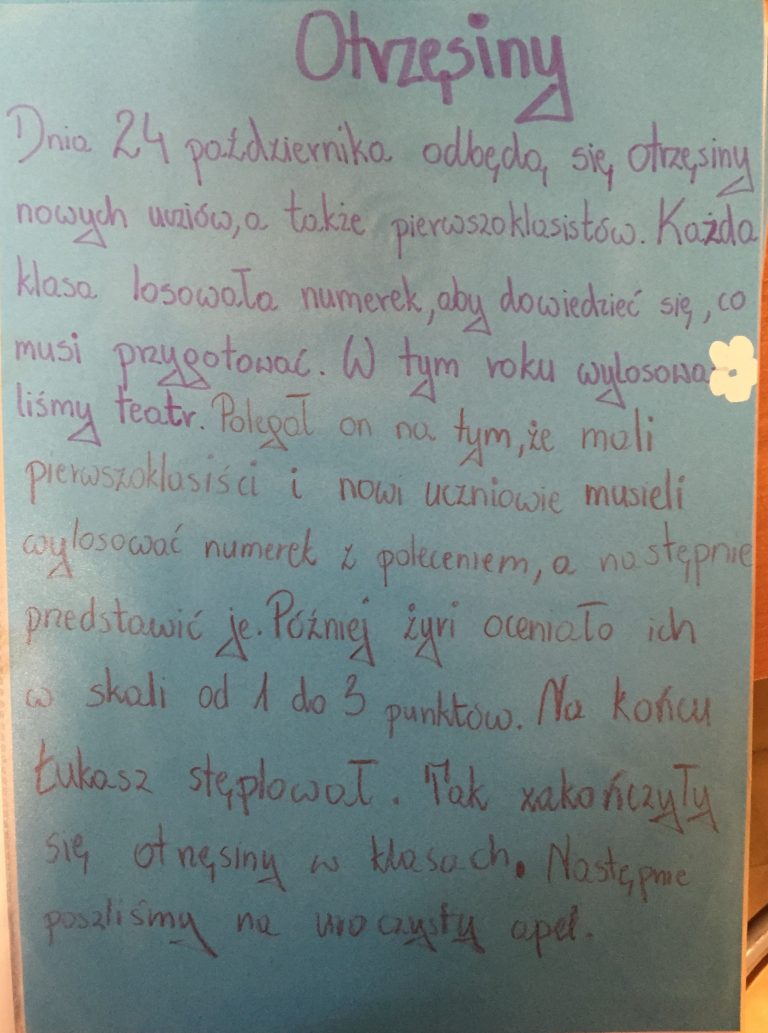 Otrzęsiny
Dnia 24 października odbędą się otrzęsiny
nowych uczniów, a także pierwszoklasistów. Każda
klasa losowała numerek, aby dowiedzieć się, co
musi przygotować. W tym roku wylosowa-
liśmy teatr. Polegał on na tym, że mali
pierwszoklasiści i nowi uczniowie musieli
wylosować numerek z poleceniem, a następnie
przedstawić je. Później żyri oceniało ich
w skali od 1 do 3 punktów. Na końcu
Łukasz stęplował. Tak zakończyły
się otrzęsiny w klasach. Następnie
poszliśmy na uroczysty apel.